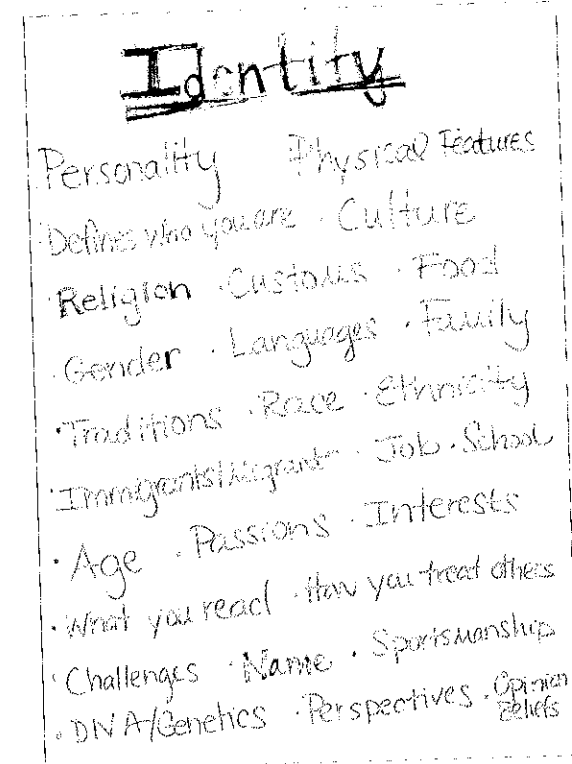 Identity
Personality Physical Features
· Defines who you are · Culture
· Religion · Customs · Food
· Gender · Languages · Family
· Traditions · Race · Ethnicity
· Immigrants/Migrant · Job · School
· Age · Passions · Interests
· What you read · How you treat others
· Challenges · Name · Sportsmanship
· DNA/Genetics · Perspectives · Opinion
Beliefs